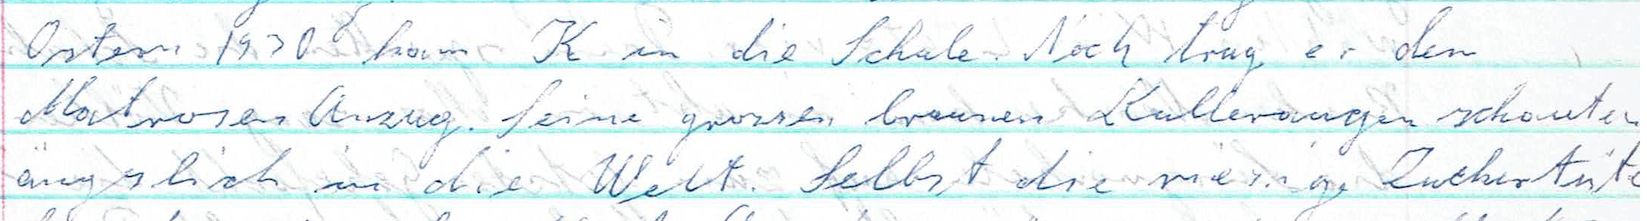 Ostern 1930 kam K in die Schule. Noch trug er den
Matrosen Anzug. Seine grossen braunen Kulleraugen schauten
ängslich in die Welt. Selbst die riesige Zuckertüte